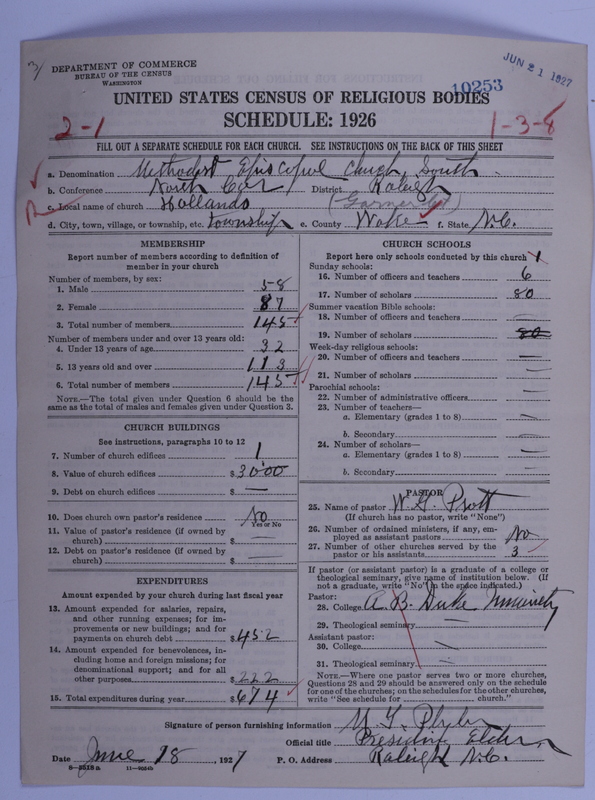 3/
DEPARTMENT OF COMMERCE
BUREAU OF THE CENSUS
WASHINGTON
JUN 21 1927
10253
UNITED STATES CENSUS OF RELIGIOUS BODIES
SCHEDULE: 1926
2-1
1-3-8
FILL OUT A SEPARATE SCHEDULE FOR EACH CHURCH. SEE INSTRUCTIONS ON THE BACK OF THIS SHEET
a. Denomination Methodist Episcopal Church, South
b. Conference North Car District Raleigh
c. Local name of church Hollands (Garner Ct)
d. City, town, village, or township, etc. township e. County Wake f. State N.C.
MEMBERSHIP
Report number of members according to definition of
member in your church
Number of members, by sex:
1. Male 58
2. Female 87
3. Total number of members 145
Number of members under and over 13 years old:
4. Under 13 years of age 32
5. 13 years old and over 113
6. Total number of members 145
NOTE.—The total given under Question 6 should be the
same as the total of males and females given under Question 3.
CHURCH BUILDINGS
See instructions, paragraphs 10 to 12
7. Number of church edifices 1
8. Value of church edifices $3000
9. Debt on church edifices $ —
10. Does church own pastor's residence No
Yes or No
11. Value of pastor's residence (if owned by
church) $ —
12. Debt on pastor's residence (if owned by
church) $ —
EXPENDITURES
Amount expended by your church during last fiscal year
13. Amount expended for salaries, repairs,
and other running expenses; for im-
provements or new buildings; and for
payments on church debt $452
14. Amount expended for benevolences, in-
cluding home and foreign missions; for
denominational support; and for all
other purposes $222
15. Total expenditures during year $674
CHURCH SCHOOLS
Report here only schools conducted by this church 1
Sunday schools:
16. Number of officers and teachers 6
17. Number of scholars 80
Summer vacation Bible schools:
18. Number of officers and teachers —
19. Number of scholars 80
Week-day religious schools:
20. Number of officers and teachers —
21. Number of scholars —
Parochial schools:
22. Number of administrative officers —
23. Number of teachers—
a. Elementary (grades 1 to 8) —
b. Secondary —
24. Number of scholars—
a. Elementary (grades 1 to 8) —
b. Secondary —
PASTOR
25. Name of pastor W. G.
(If church has no pastor, write "None")
26. Number of ordained ministers, if any, em-
ployed as assistant pastors No
27. Number of other churches served by the
pastor or his assistants 3
If pastor (or assistant pastor) is a graduate of a college or
theological seminary, give name of institution below. (If
not a graduate, write "No" in the space indicated.)
Pastor:
28. College A. B. Duke University
29. Theological seminary —
Assistant pastor:
30. College —
31. Theological seminary —
NOTE.—Where one pastor serves two or more churches,
Questions 28 and 29 should be answered only on the schedule
for one of the churches; on the schedules for the other churches,
write "See schedule for church."
Signature of person furnishing information
Official title Presiding Elder
Date June 18, 1927 P. O. Address Raleigh N.C.
11—9354b